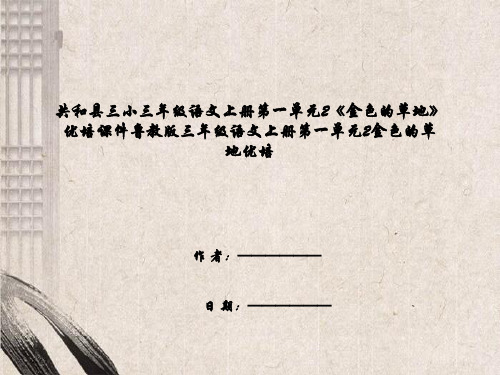 共和县三小三年级语文上册第一单元2《金色的草地》
优培课件鲁教版三年级语文上册第一单元2金色的草
地优培
作者：
日期：